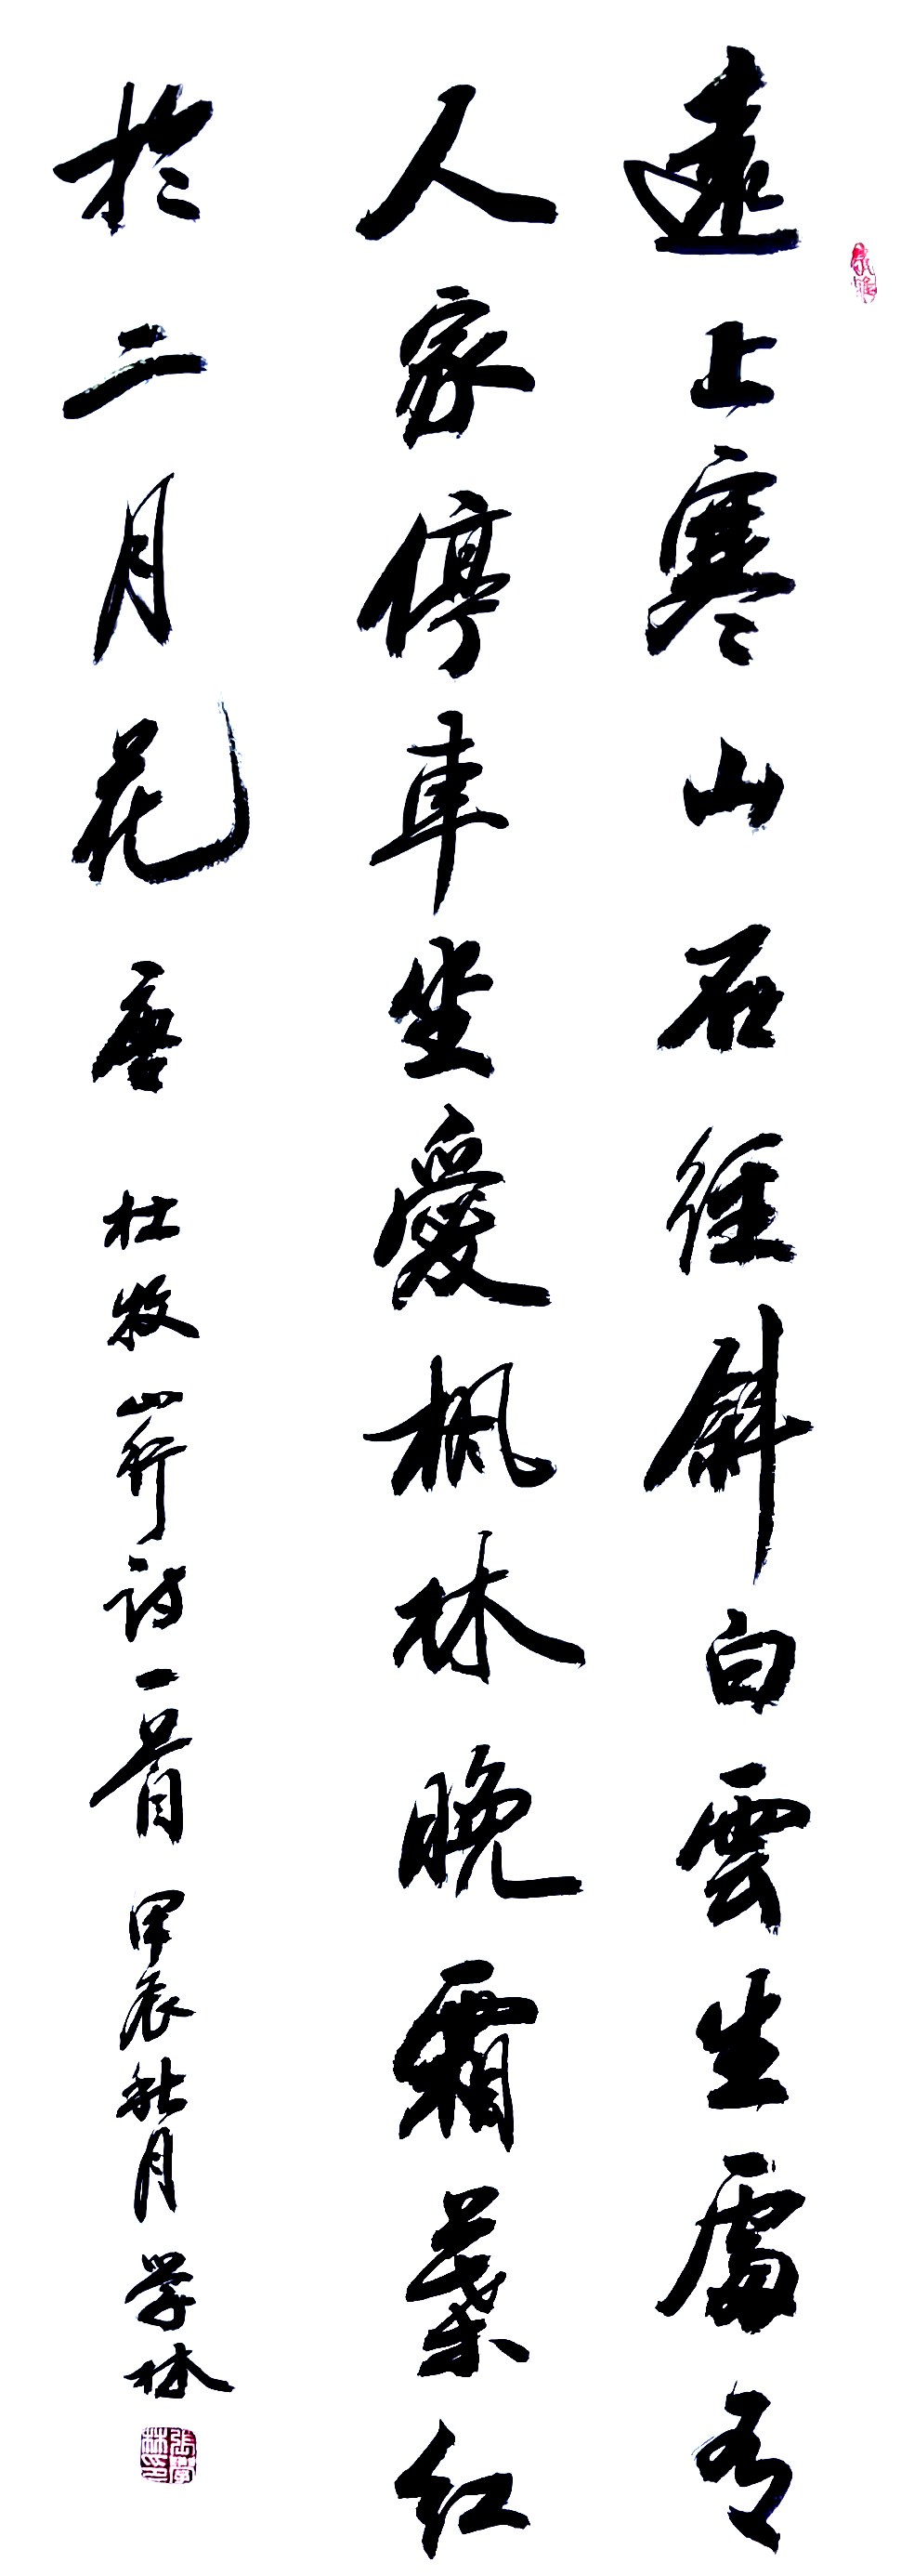 遠上寒山石徑斜白雲生處有
人家停車坐愛楓林晚霜葉红
於二月花 唐 杜牧山行詩一首 甲辰秋月 学林
張學林印